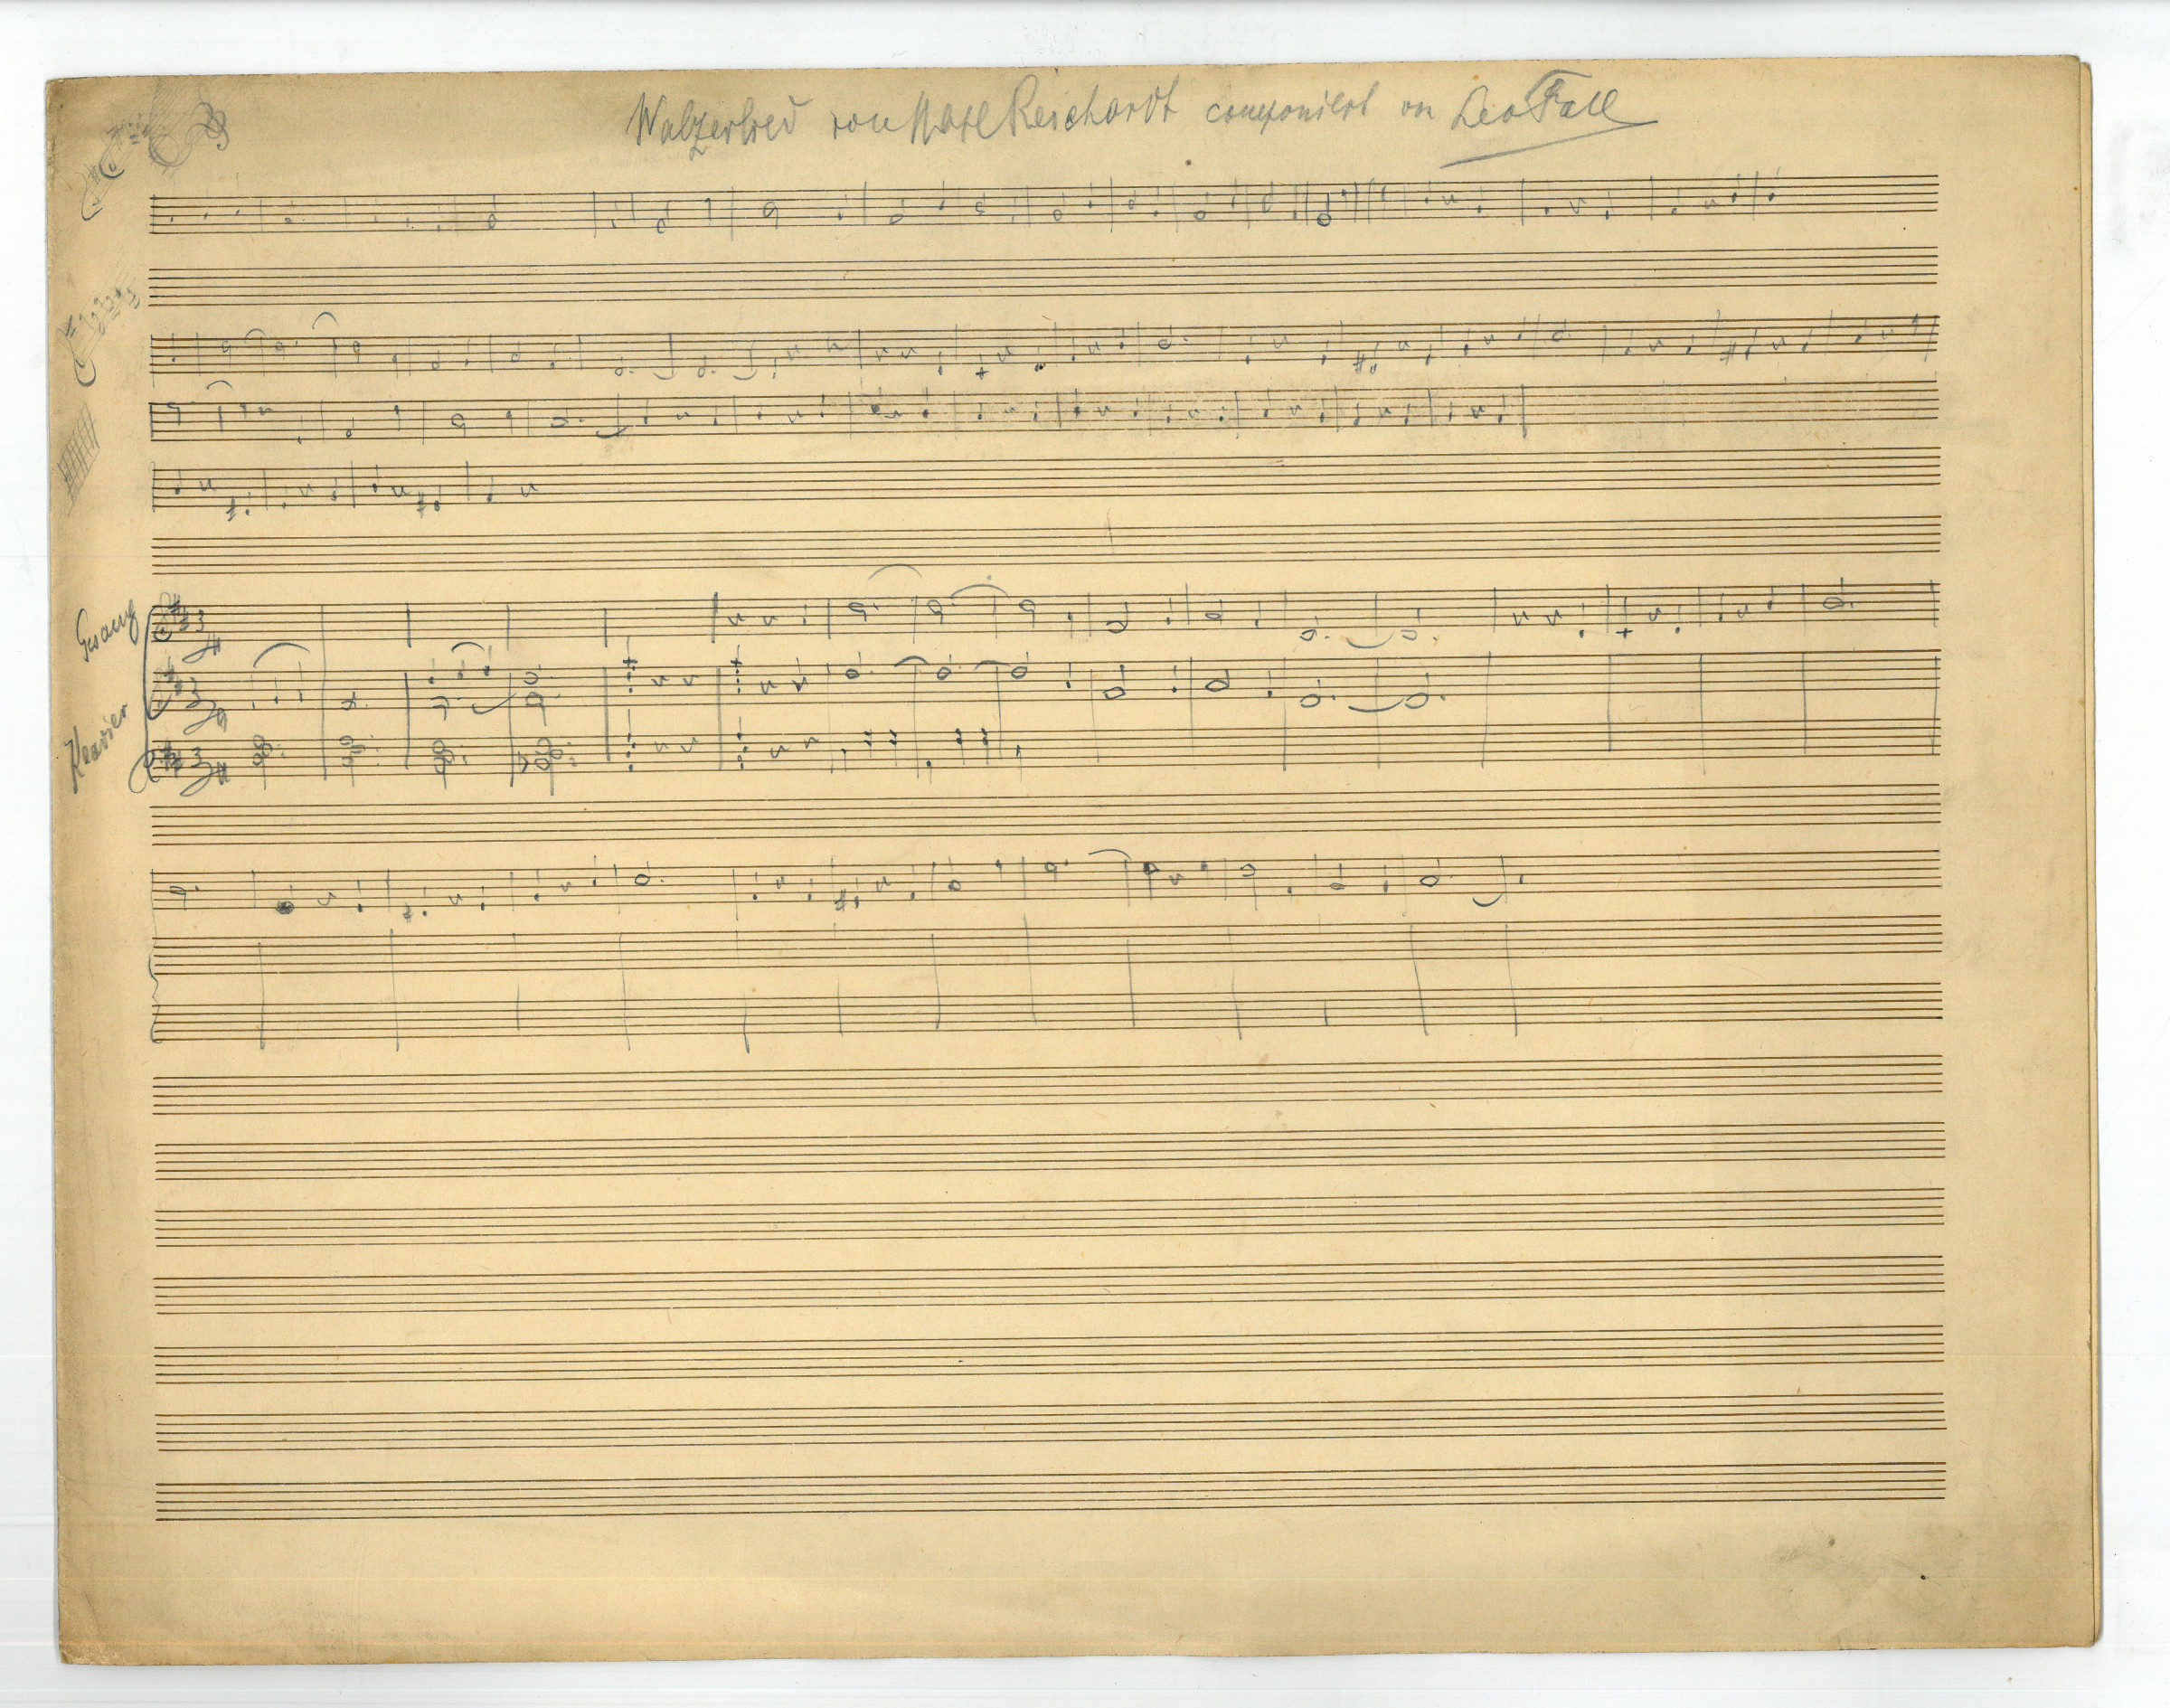 Walzerlied von Karl Reichardt componiert von Leo Fall
Gesang
Klavier